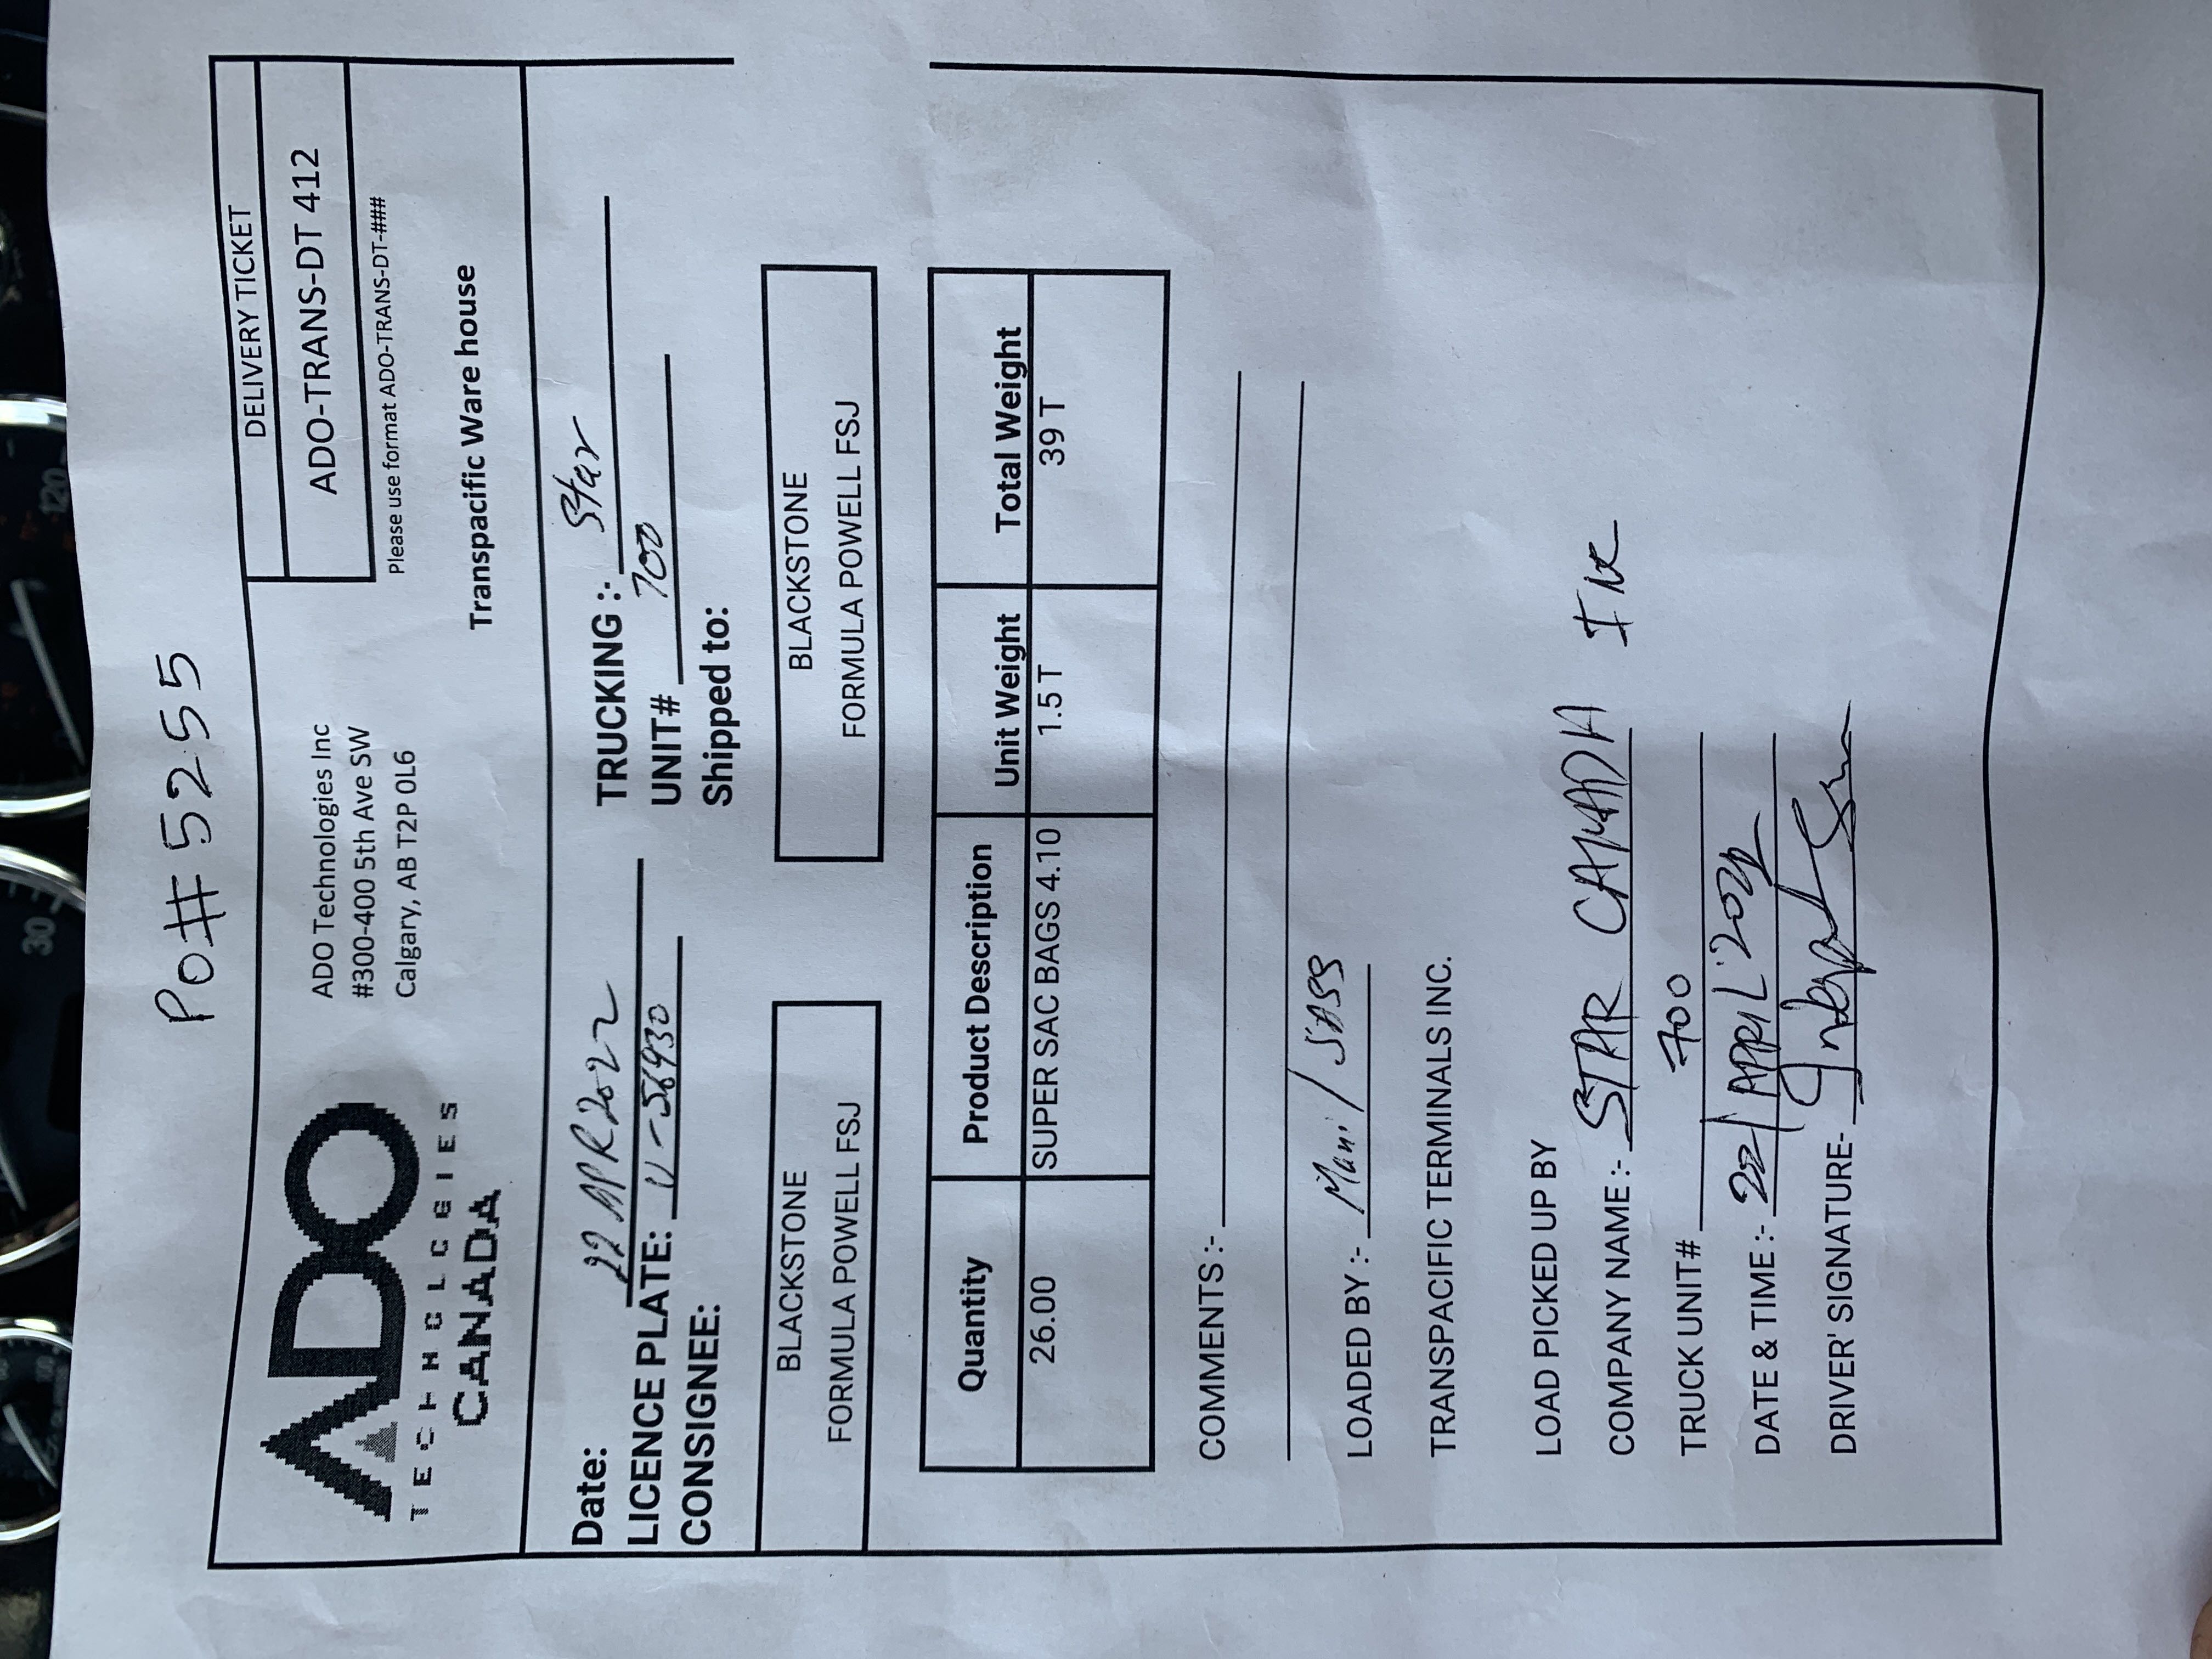 30
120
PO# 5255
DELIVERY TICKET
ADO
TECHNOLOGIES
CANADA
ADO Technologies Inc
#300-400 5th Ave SW
Calgary, AB T2P 0L6
ADO-TRANS-DT 412
Please use format ADO-TRANS-DT-###
Transpacific Ware house
Date: 22 APR 2022
TRUCKING :- Star
LICENCE PLATE: U-56930
UNIT# 700
CONSIGNEE:
Shipped to:
BLACKSTONE
FORMULA POWELL FSJ
BLACKSTONE
FORMULA POWELL FSJ
Quantity Product Description Unit Weight Total Weight
26.00 SUPER SAC BAGS 4.10 1.5 T 39 T
COMMENTS :-
LOADED BY :- Mani /
TRANSPACIFIC TERMINALS INC.
LOAD PICKED UP BY
COMPANY NAME :- STAR CANADA INC
TRUCK UNIT# 700
DATE & TIME :- 22/APRIL'2022
DRIVER' SIGNATURE-